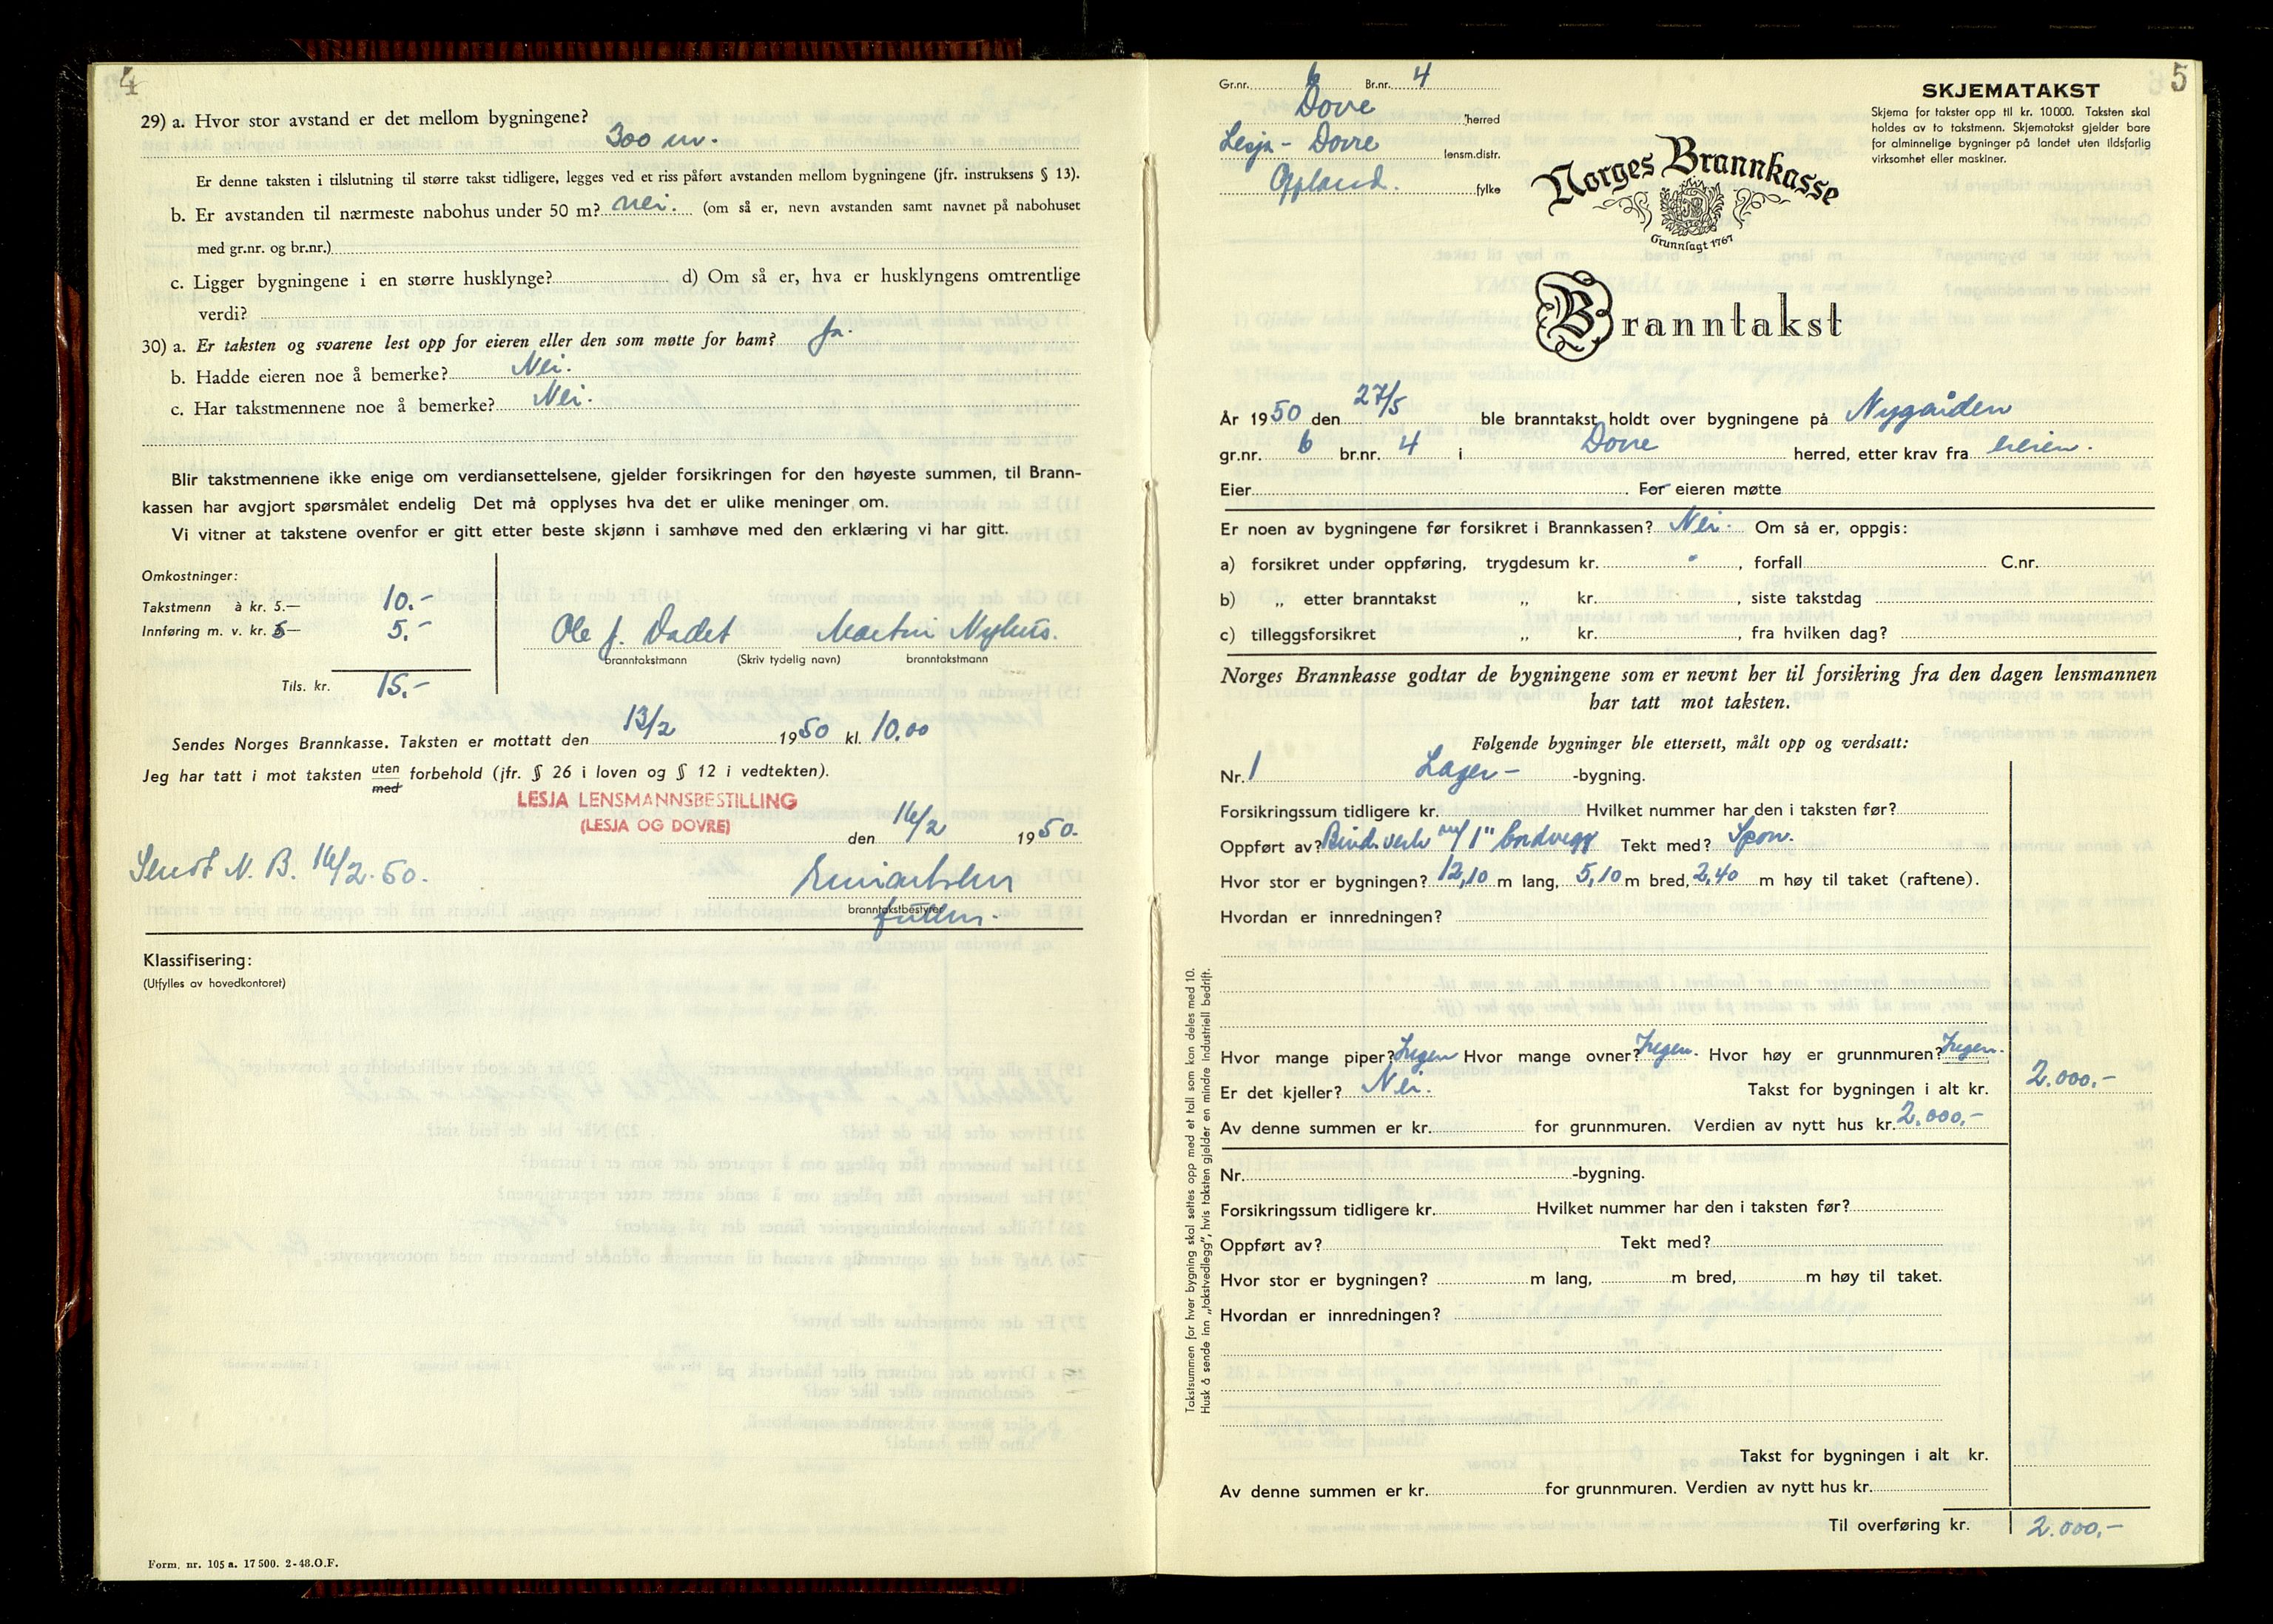 4
29) a. Hvor stor avstand er det mellom bygningene?
300 m.
Er denne taksten i tilslutning til større takst tidligere, legges ved et riss påført avstanden mellom bygningene (jfr. instruksens § 13).
b. Er avstanden til nærmeste nabohus under 50 m? nei. (om så er, nevn avstanden samt navnet på nabohuset
med gr.nr. og br.nr.)
c. Ligger bygningene i en større husklynge? d) Om så er, hva er husklyngens omtrentlige
verdi?
30) a. Er taksten og svarene lest opp for eieren eller den som møtte for ham? Ja.
b. Hadde eieren noe å bemerke? Nei.
c. Har takstmennene noe å bemerke? Nei.
Blir takstmennene ikke enige om verdiansettelsene, gjelder forsikringen for den høyeste summen, til Brann-
kassen har avgjort spørsmålet endelig Det må opplyses hva det er ulike meninger om.
Vi vitner at takstene ovenfor er gitt etter beste skjønn i samhøve med den erklæring vi har gitt.
Omkostninger:
Takstmenn à kr. 5.— 10.-
Innføring m. v. kr. 5— 5.-
Tils. kr. 15.-
Ole J. Dadet Martin Nyhus.
branntakstmann (Skriv tydelig navn) branntakstmann
Sendes Norges Brannkasse. Taksten er mottatt den 13/2 1950 kl. 10.00
Jeg har tatt i mot taksten uten med forbehold (jfr. § 26 i loven og § 12 i vedtekten).
LESJA LENSMANNSBESTILLING
(LESJA OG DOVRE)
den 16/2 1950.
Sendt N. B. 16/2.50.
branntakstbestyrer
Klassifisering:
(Utfylles av hovedkontoret)
Form. nr. 105 a. 17 500. 2-48. O.F.
5
Gr.nr. 6 Br.nr. 4
Dovre herred
Lesja - Dovre lensm.distr.
Oppland. fylke
SKJEMATAKST
Skjema for takster opp til kr. 10 000. Taksten skal
holdes av to takstmenn. Skjematakst gjelder bare
for alminnelige bygninger på landet uten ildsfarlig
virksomhet eller maskiner.
Norges Brannkasse
Grunnlagt 1767
Branntakst
År 1950 den 27/5 ble branntakst holdt over bygningene på Nygården
gr.nr. 6 br.nr. 4 i Dovre herred, etter krav fra eieren.
Eier For eieren møtte
Er noen av bygningene før forsikret i Brannkassen? Nei. Om så er, oppgis:
a) forsikret under oppføring, trygdesum kr. , forfall C.nr.
b) „ etter branntakst „ kr. , siste takstdag
c) tilleggsforsikret „ kr. , fra hvilken dag?
Norges Brannkasse godtar de bygningene som er nevnt her til forsikring fra den dagen lensmannen
har tatt mot taksten.
Følgende bygninger ble ettersett, målt opp og verdsatt:
Nr. 1 Lager- -bygning.
Forsikringssum tidligere kr. Hvilket nummer har den i taksten før?
Oppført av? Bindverk m/ 1" bordvegg Tekt med? Spon.
Hvor stor er bygningen? 12,10 m lang, 5,10 m bred, 2,40 m høy til taket (raftene).
Hvordan er innredningen?
Hvor mange piper? Ingen Hvor mange ovner? Ingen. Hvor høy er grunnmuren? Ingen.
Er det kjeller? Nei. Takst for bygningen i alt kr. 2.000.-
Av denne summen er kr. for grunnmuren. Verdien av nytt hus kr. 2.000,-
Nr. -bygning.
Forsikringssum tidligere kr. Hvilket nummer har den i taksten før?
Oppført av? Tekt med?
Hvor stor er bygningen? m lang, m bred, m høy til taket.
Hvordan er innredningen?
Takst for bygningen i alt kr.
Av denne summen er kr. for grunnmuren. Verdien av nytt hus kr.
Til overføring kr. 2.000,-
Takstsummen for hver bygning skal settes opp med et tall som kan deles med 10.
Husk å sende inn „takstvedlegg", hvis taksten gjelder en mindre industriell bedrift.